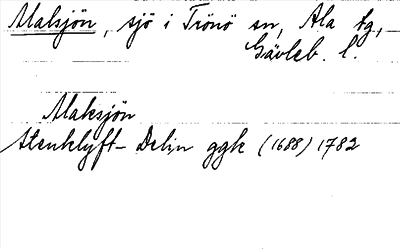 Malsjön, sjö i Trönö sn, Ala tg,
Gävleb. l.
Malesjön
Stenklyft- Delin ggk (1688) 1782